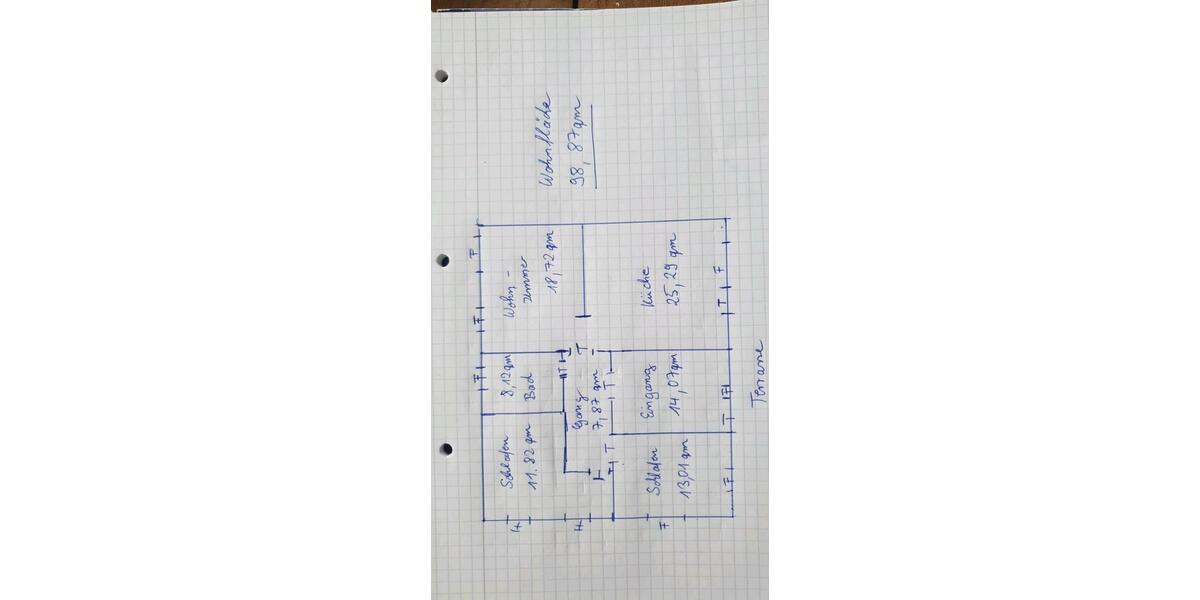 Wohnfläche
98,87qm
Wohn-
zimmer
18,72 qm
Küche
25,29 qm
8,12qm
Bad
Gang
7,87 qm
Eingang
14,07qm
Schlafen
11,82 qm
Schlafen
13,01 qm
Terrasse
F
F
F
F
F
F
F
F
F
F
T
T
T
T
T
T
T